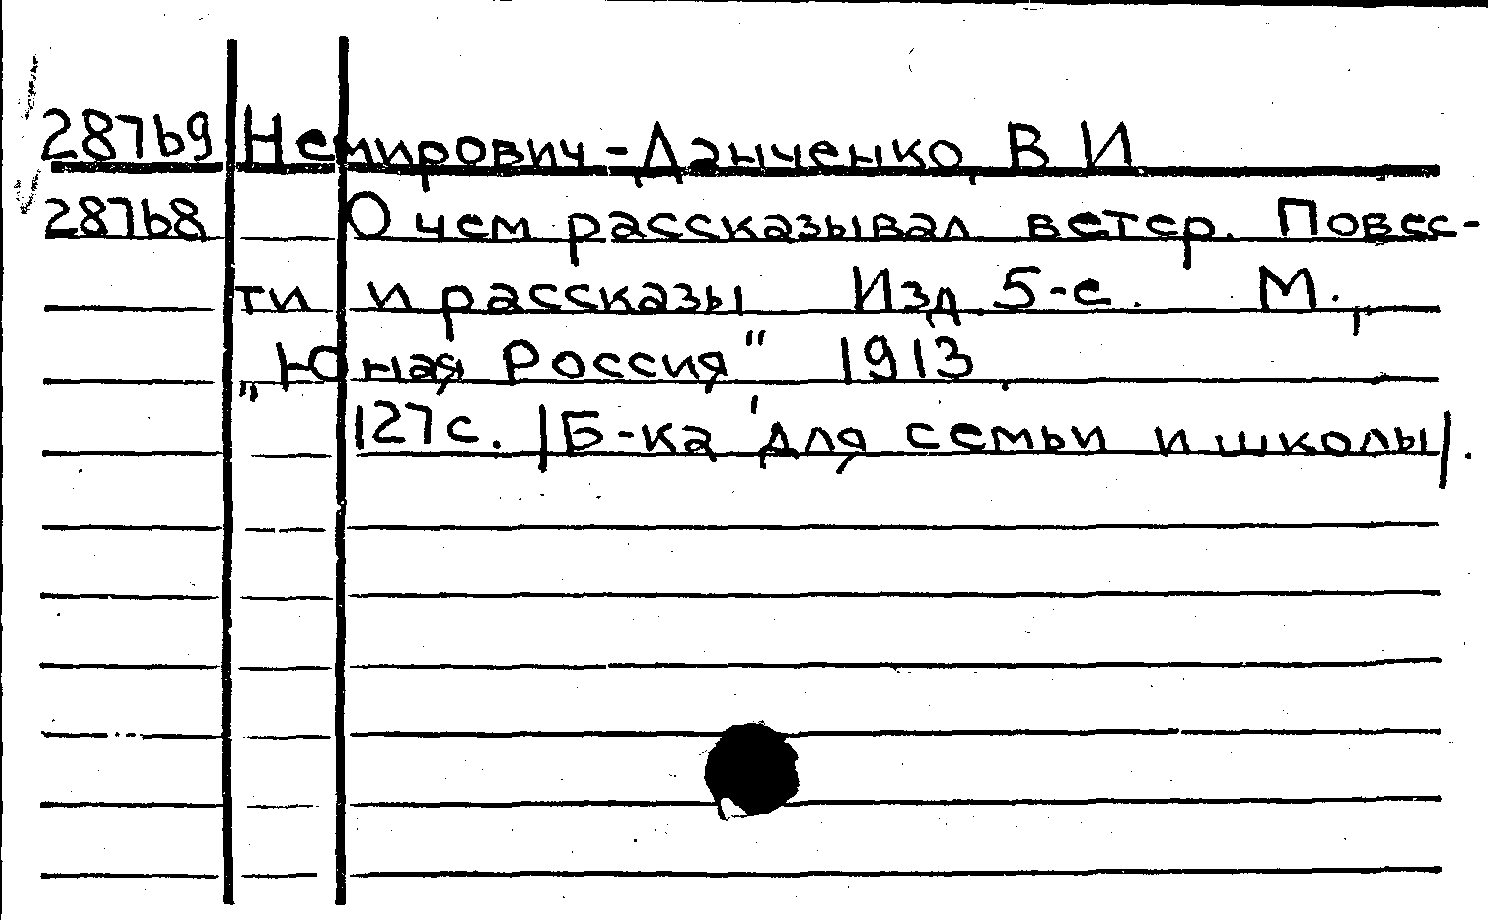 28769 Немирович-Данченко, В И
28768 О чем рассказывал ветер. Повес-
ти и рассказы Изд. 5-е. М.,
„Юная Россия" 1913.
127с. |Б-ка для семьи и школы|.